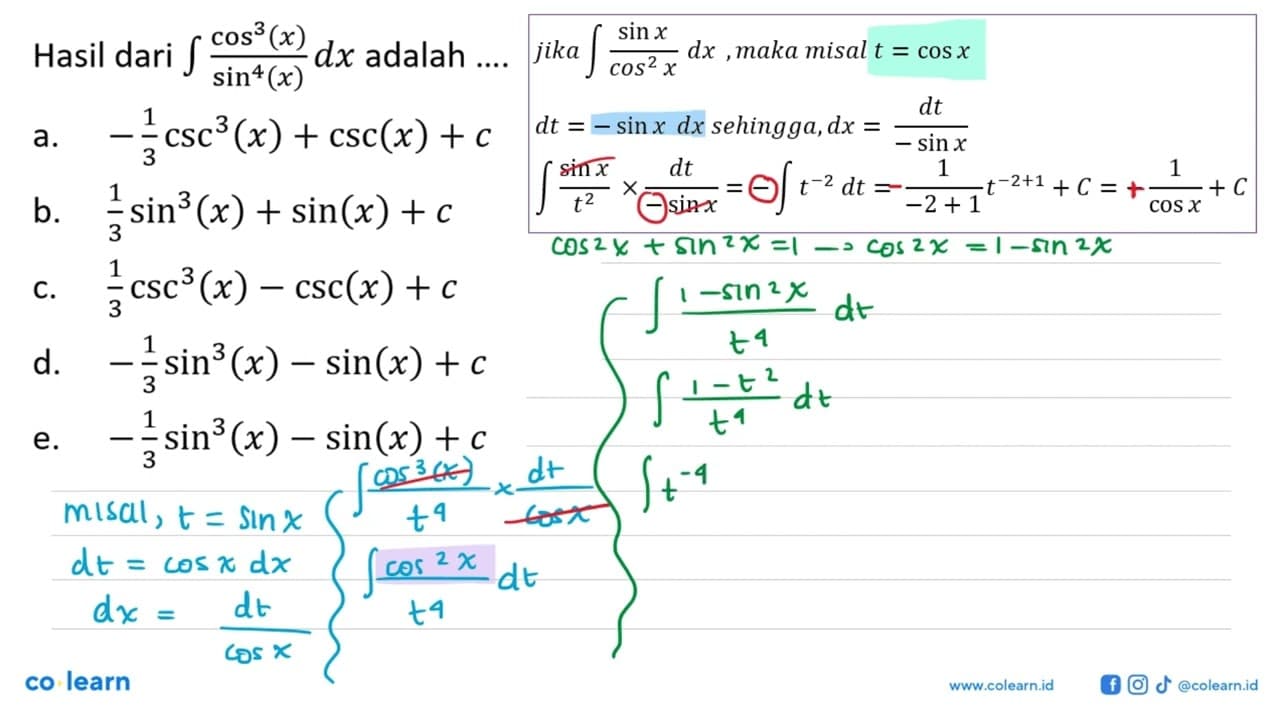 Hasil dari ∫ cos³(x)/sin⁴(x) dx adalah ....
a. −1/3 csc³(x) + csc(x) + c
b. 1/3 sin³(x) + sin(x) + c
c. 1/3 csc³(x) − csc(x) + c
d. −1/3 sin³(x) − sin(x) + c
e. −1/3 sin³(x) − sin(x) + c
jika ∫ sin x/cos² x dx , maka misal t = cos x
dt = − sin x dx sehingga, dx = dt/− sin x
∫ sin x/t² × dt/− sin x = − ∫ t⁻² dt = − 1/−2 + 1 t⁻²⁺¹ + C = + 1/cos x + C
cos²x + sin²x = 1 → cos²x = 1 − sin²x
misal, t = sin x
dt = cos x dx
dx = dt/cos x
∫ cos³(x)/t⁴ × dt/cos x
∫ cos²x/t⁴ dt
∫ 1 − sin²x/t⁴ dt
∫ 1 − t²/t⁴ dt
∫ t⁻⁴
co learn
www.colearn.id
@colearn.id